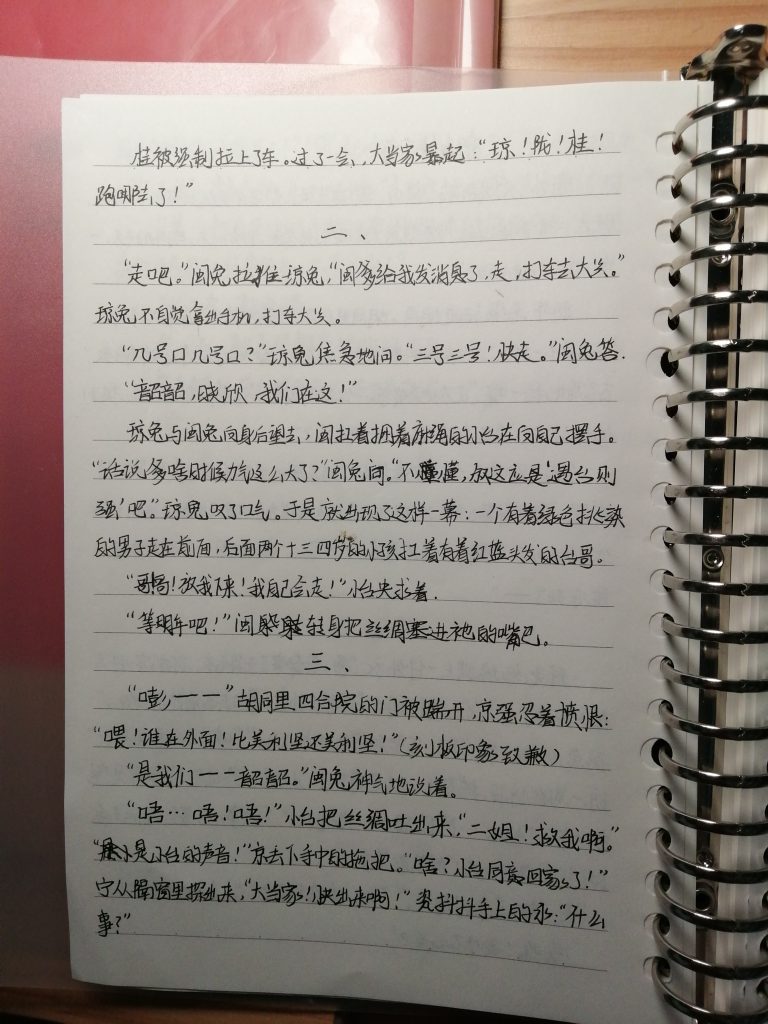 桂被强制拉上了车。过了一会，大当家暴起：“琼！陇！桂！
跑哪去了！”
二、
“走吧。”闽兔拉住琼兔，“闽爹给我发消息了，走，打车去大兴。”
琼兔不自觉拿出手机，打车大兴。
“几号口几号口？”琼兔焦急地问。“三号三号！快走。”闽兔答.
“韶韶，晓欣，我们在这！”
琼兔与闽兔向身后望去，闽扛着捆着麻绳的小台在向自己摆手。
“话说爹啥时候力气这么大了？”闽兔问。“不懂，叔这应是‘遇台则
强’吧。”琼兔叹了口气。于是就出现了这样一幕：一个有着绿色挑染
的男子走在前面，后面两个十三四岁的小孩扛着有着红蓝头发的台哥。
“哥哥！放我下来！我自己会走！”小台央求着.
“等明年吧！”闽转身把丝绸塞进祂的嘴巴。
三、
“嘭——”胡同里四合院的门被踹开，京强忍着愤恨：
“喂！谁在外面！比美利坚还美利坚！”（刻板印象致歉）
“是我们——韶韶。”闽兔神气地说着。
“唔…唔！唔！”小台把丝绸吐出来，“二姐！救我啊。”
“是小台的声音！”京丢下手中的拖把。“啥？小台同意回家了！”
宁从隔窗里探出来，“大当家！快出来啊！”瓷抖抖手上的水：“什么
事？”